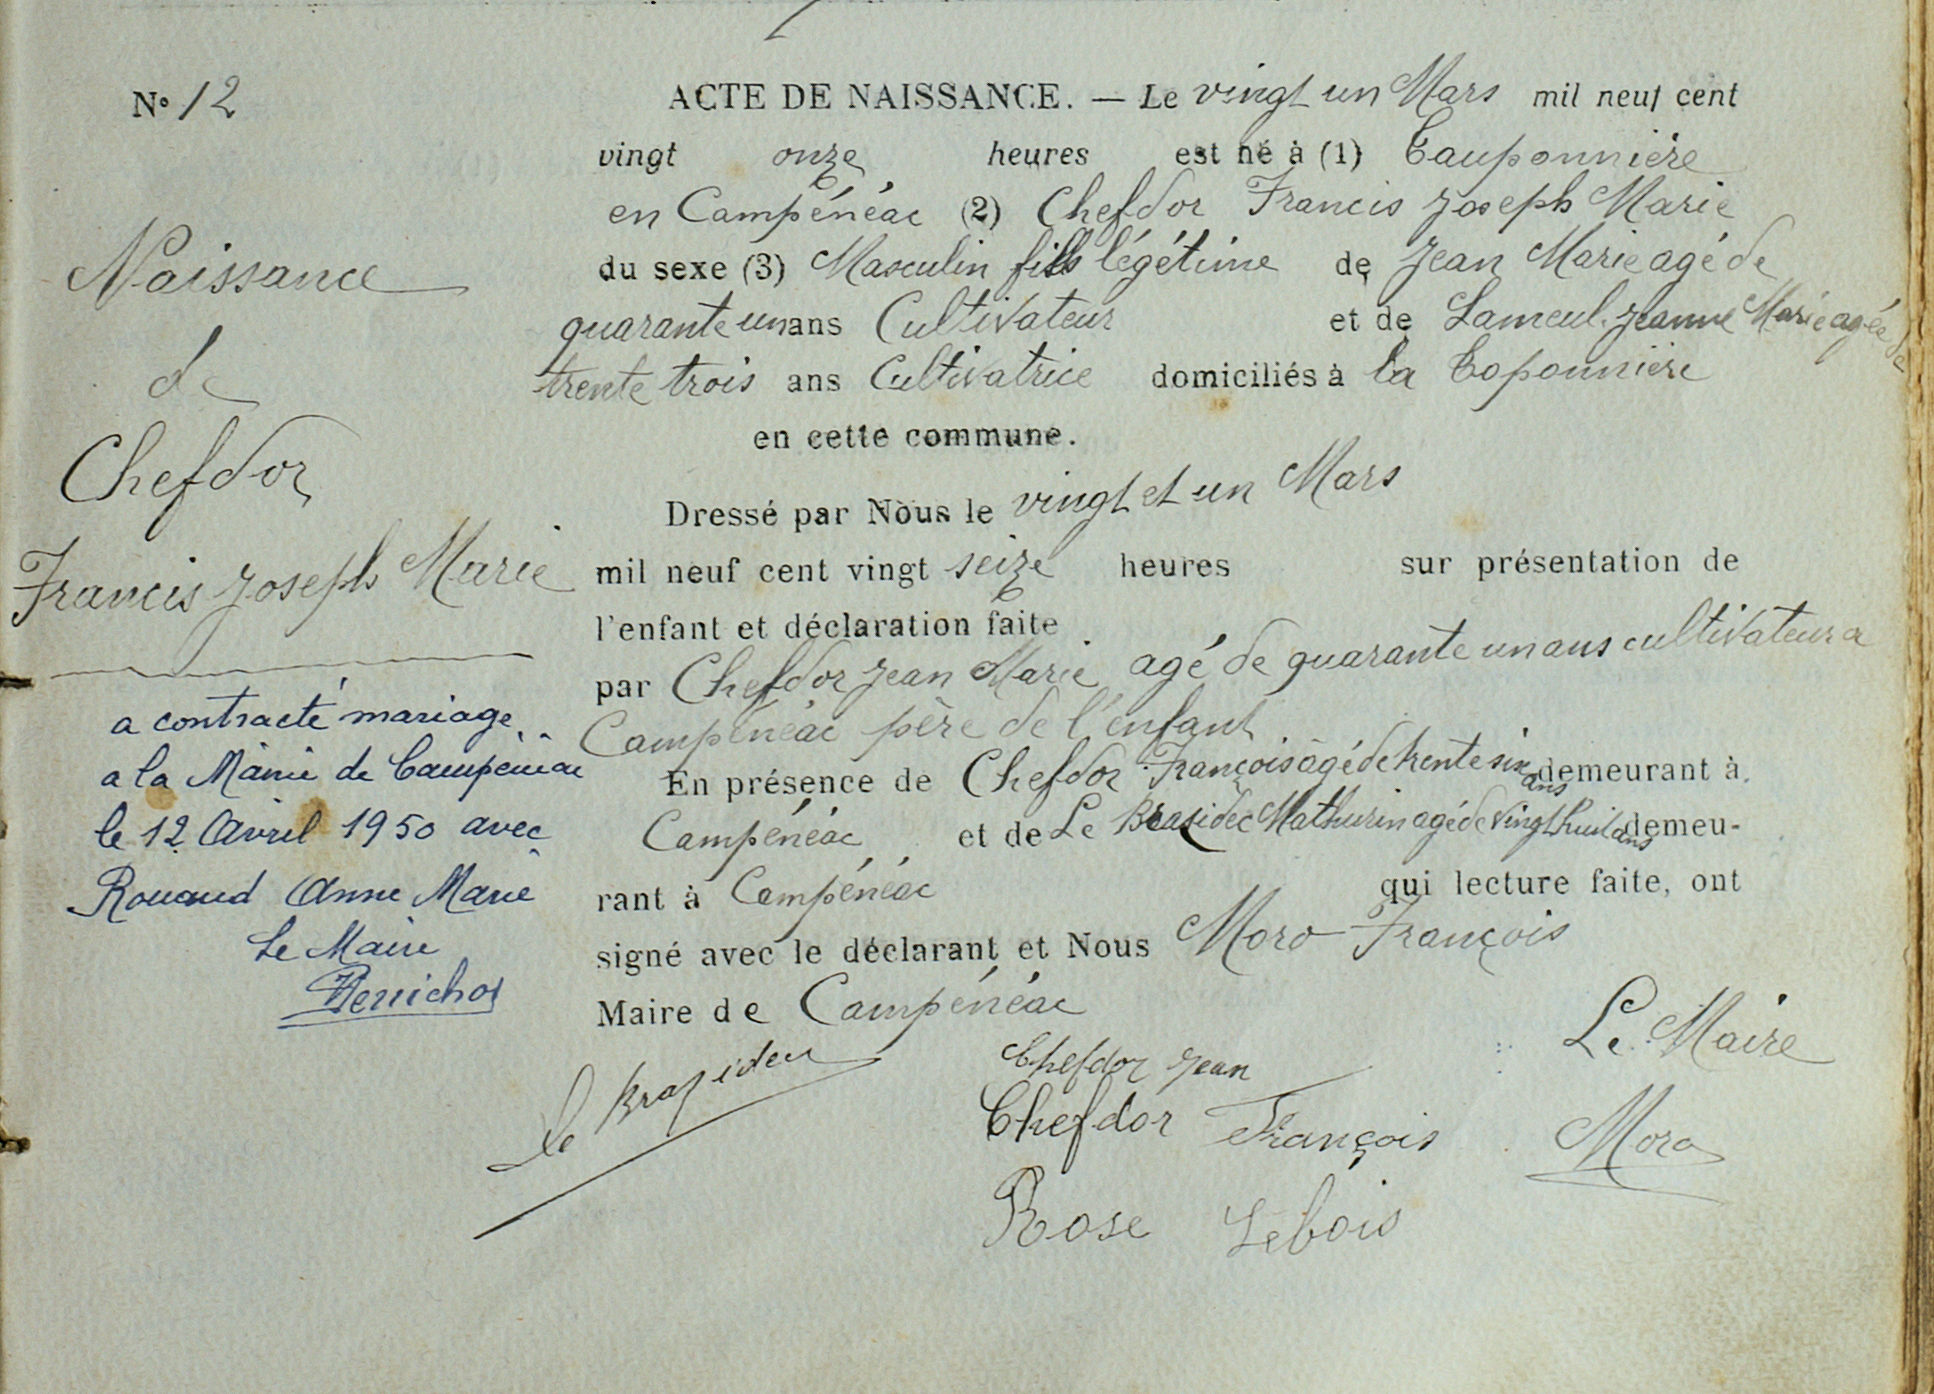 N° 12
Naissance
de
Chefdor
Francis Joseph Marie
a contracté mariage
a la Mairie de Campénéac
le 12 Avril 1950 avec
Rouaud Anne Marie
Le Maire
ACTE DE NAISSANCE. — Le vingt un Mars mil neuf cent
vingt onze heures est né à (1) Tauponnière
en Campénéac (2) Chefdor Francis Joseph Marie
du sexe (3) Masculin fils légétime de Jean Marie agé de
quarante un ans Cultivateur et de Lameul Jeanne Marie agée de
trente trois ans Cultivatrice domiciliés à la Toponnière
en cette commune.
Dressé par Nous le vingt et un Mars
mil neuf cent vingt seize heures sur présentation de
l'enfant et déclaration faite
par Chefdor Jean Marie agé de quarante un ans cultivateur a
Campénéac père de l'enfant
En présence de Chefdor François âgé de trente six ans demeurant à
Campénéac et de Le Brazidec Mathurin agé de vingt huit ans demeu-
rant à Campénéac qui lecture faite, ont
signé avec le déclarant et Nous Moro François
Maire de Campénéac
Le Maire
le Brazidec
Chefdor Jean
Chefdor François
Moro
Rose Lebois